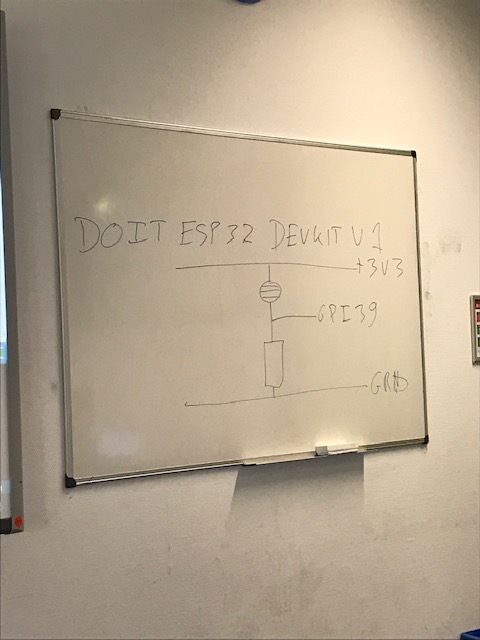 DOIT ESP32 DEVKIT V1
+3V3
GPI39
GRND